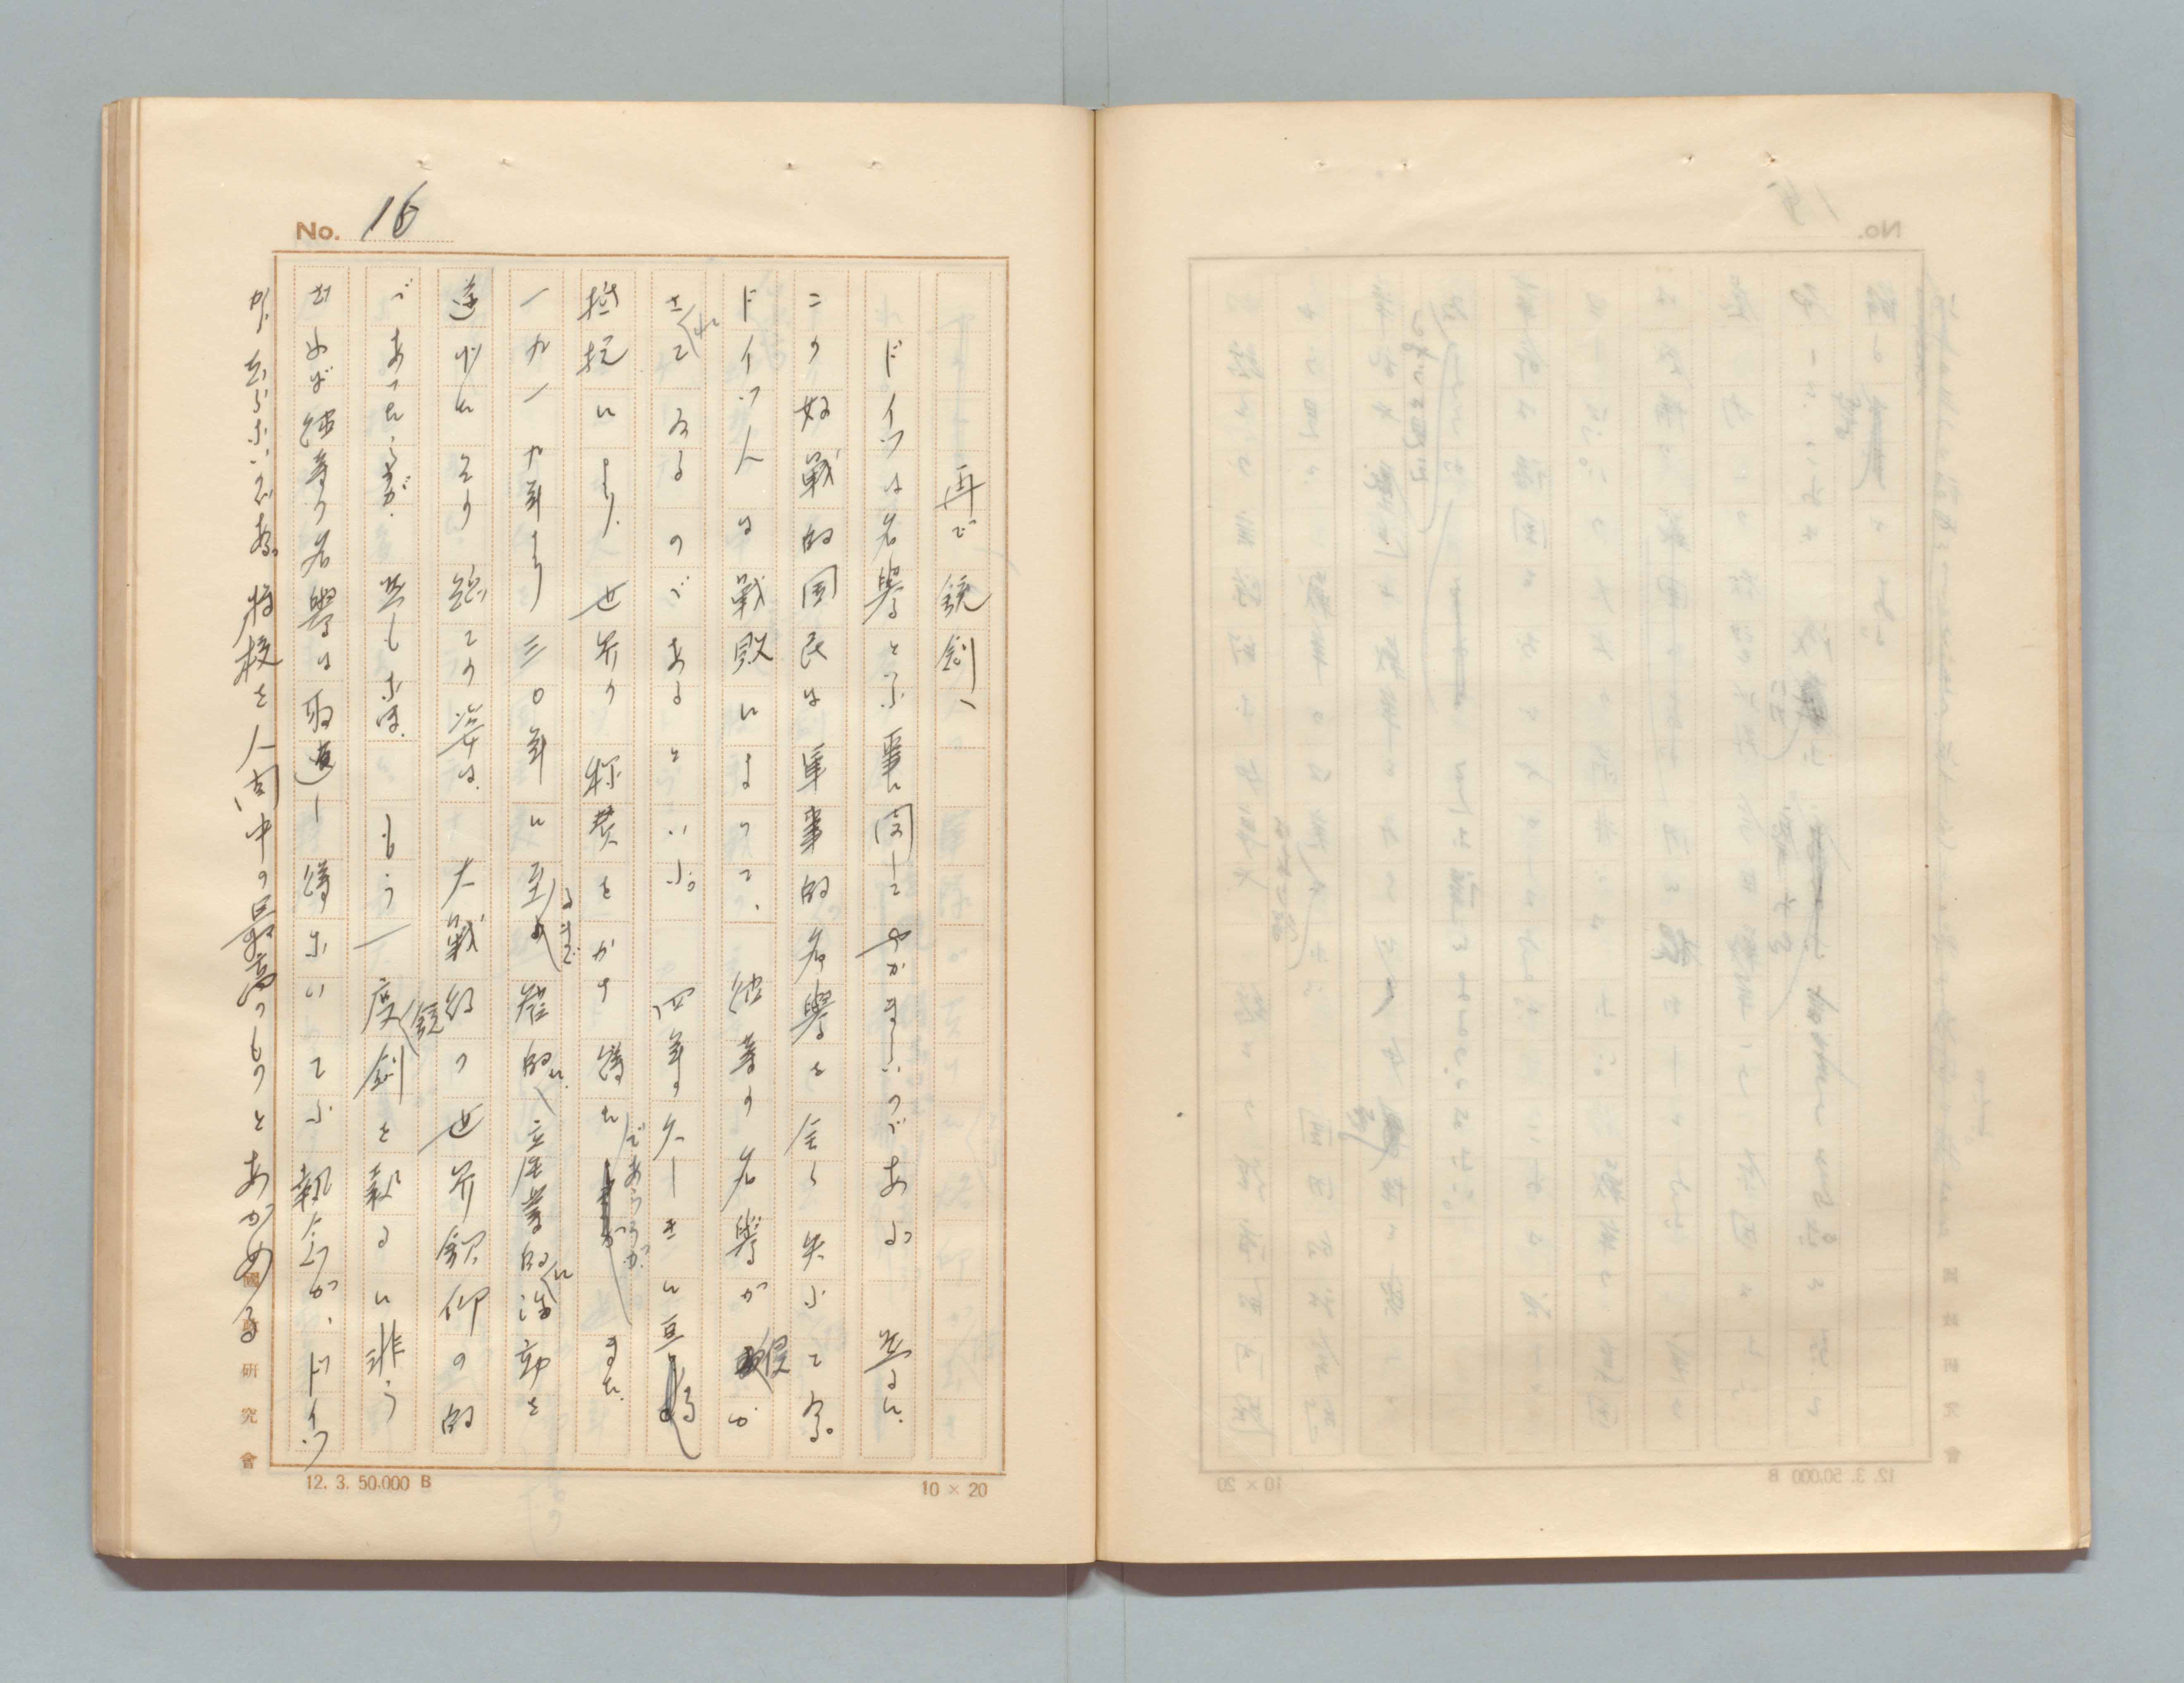 No. 16
再び銃剣へ
ドイツは名譽と云ふ事に関してやかましいのである。然るに、
この好戦的国民は軍事的名譽を全く失ふて居る。
ドイツ人は戦敗によつて、彼等の名譽が侵が
されてゐるのであるといふ。四年の久しきに亘る
抵抗により、世界の称賛をかち得たであらうが、また、
一九一九年より三〇年に至るまで産的に、産業的に活動を
遂げたその総ての姿は、大戦後の世界欽仰の的
であつたらうが。然もなほ、もう一度銃剣を執るに非ら
ざれば彼等の名譽は取返し得ないてふ執念が、ドイツ
か、去らないのである。将校を人間中の最高のものとあがめる
國政研究會
12. 3. 50,000 B
10 × 20